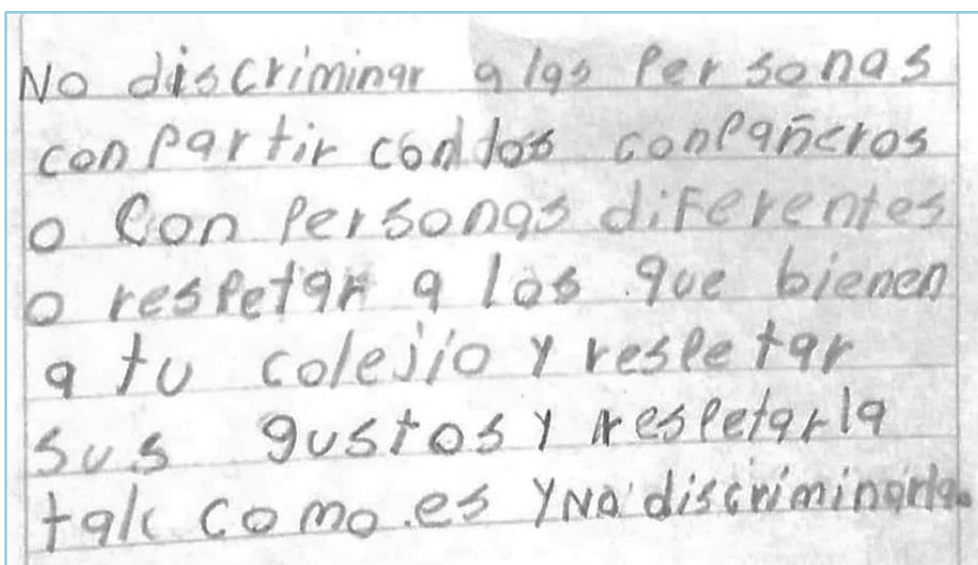 No discriminar a las Personas
conPartir con los conPañeros
o Con Personas diferentes
o respetar a los que bienen
a tu colejio y respetar
sus gustos y respetarla
talc como es y No discriminarla.